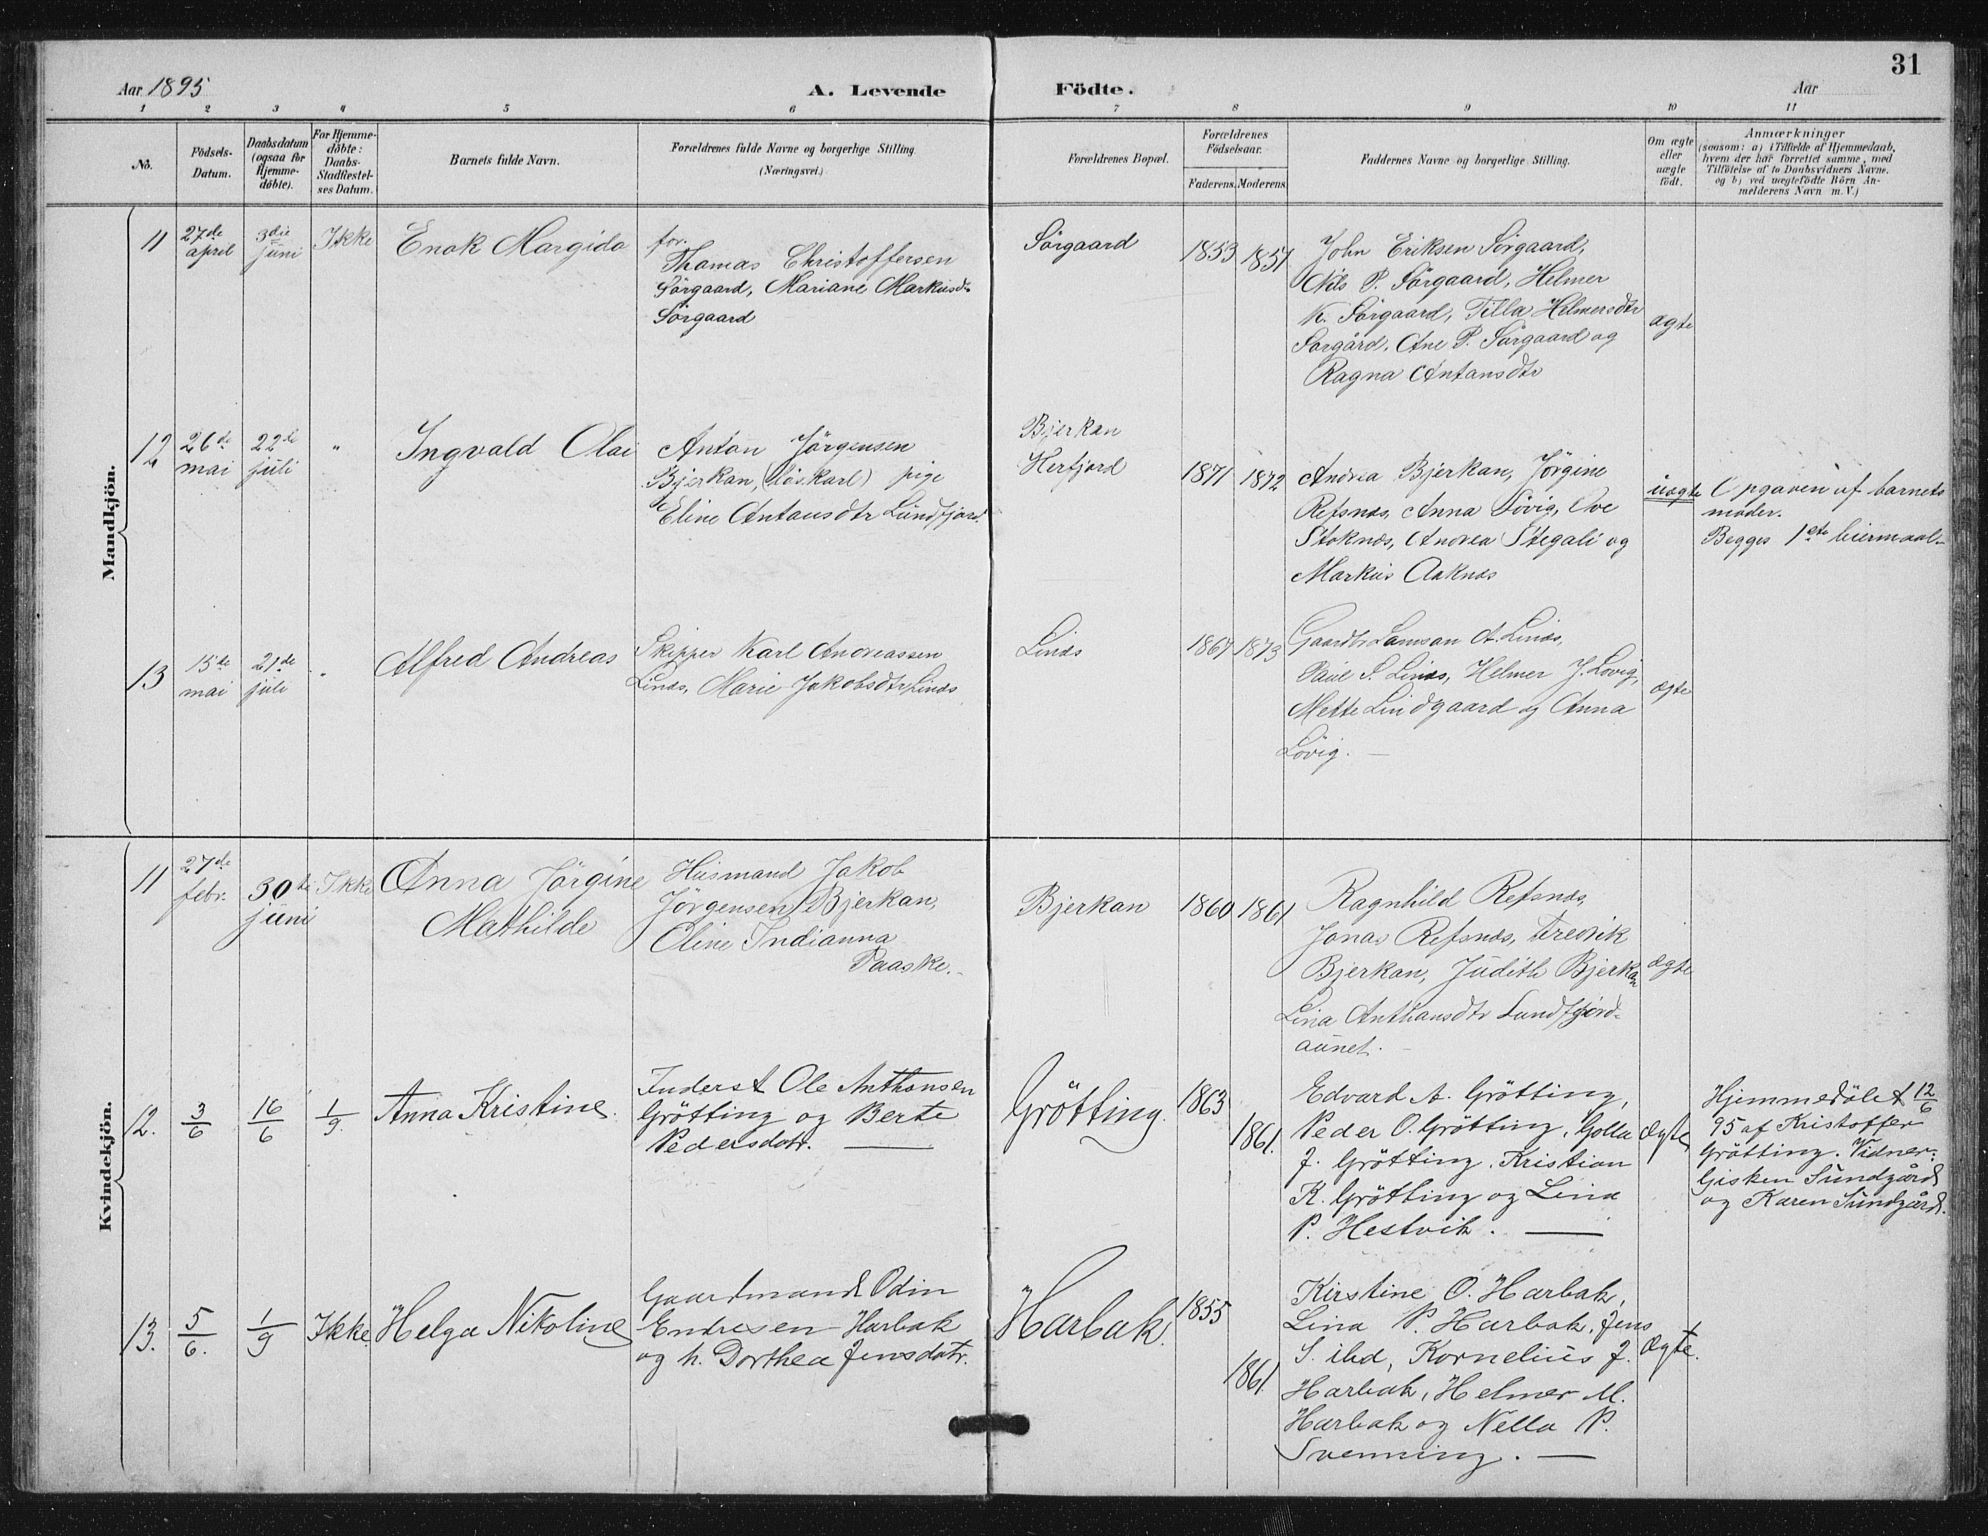 31
Aar 1895
A. Levende
Födte.
Aar
1 2 3 4 5 6 7 8 9 10 11
No.
Födsels-
Datum.
Daabsdatum
(ogsaa for
Hjemme-
döbte).
For Hjemme-
döbte:
Daabs-
Stadfæstel-
ses Datum.
Barnets fulde Navn.
Forældrenes fulde Navne og borgerlige Stilling.
(Næringsvei.)
Forældrenes Bopæl.
Forældrenes
Födselsaar.
Faderens. Moderens.
Faddernes Navne og borgerlige Stilling.
Om ægte
eller
uægte
födt.
Anmærkninger
(saasom: a) i Tilfælde af Hjemmedaab,
hvem der har forrettet samme, med
Tilföielse af to Daabsvidners Navne.
og b) ved uægtefödte Börn An-
melderens Navn m. V.)
Mandkjön.
11
27de
april
3die
juni
Ikke
Enok Margido
for.
Thomas Christoffersen
Sörgaard, Mariane Markusdtr
Sörgaard
Sörgaard
1853
1851
John Eriksen Sörgaard,
Nils P. Sörgaard, Helmer
K. Sörgaard, Tilla Helmersdtr
Sörgård, Ane P. Sörgaard og
Ragna Antansdtr
ægte
12
26de
mai
22de
juli
"
Ingvald Olai
Anton Jörgensen
Bjerkan, (löskarl) pige
Eline Antansdtr Sundfjord.
Bjerkan
Herfjord
1871
1872
Andrea Bjerkan, Jörgine
Refsnæs, Anna Lövig, Ove
Stoknæs, Andrea Stegali og
Markus Aaknæs
uægte
Opgaven af barnets
moder.
Begges 1ste leiermaal.
13
15de
mai
21de
juli
"
Alfred Andreas
Skipper Karl Andreassen
Linæs, Marie Jakobsdtr Linæs
Linæs
1867
1873
Gaardbr Lamsan A. Linæs,
Paul P. Linæs, Helmer J. Lövig,
Mette Lindgaard og Anna
Lövig. —
ægte
Kvindekjön.
11
27de
febr.
30te
juni
Ikke
Anna Jörgine
Mathilde
Husmand Jakob
Jörgensen Bjerkan,
Oline Indianna
Paaske.
Bjerkan
1860
1861
Ragnhild Refsnæs,
Jonas Refsnæs, Fredrik
Bjerkan, Judith Bjerkan
Lina Anthansdtr Sundfjord-
aunet. —
ægte
12.
3/6
16/6
1/9.
Anna Kristine.
Inderst Ole Anthonsen
Grötting og Berte
Pedersdatr. —
Grötting.
1863
1861.
Edvard A. Grötting,
Peder O. Grötting, Golla
J. Grötting, Kristian
K. Grötting og Lina
P. Hestvik. —
Ægte
Hjemmedöbt 12/6
95 af Kristoffer
Grötting. Vidner:
Gisken Sundgård
og Karen Sundgård.
13.
5/6.
1/9
Ikke.
Helga Nikoline
Gaardmand Odin
Endresen Harbak
og h. Dorthea Jensdatr.
Harbak.
1855
1861.
Kirstine O. Harbak,
Lina P. Harbak, Jens
S. ibd, Kornelius J.
Harbak, Helmer M.
Harbak og Nella P.
Svenning. —
Ægte.